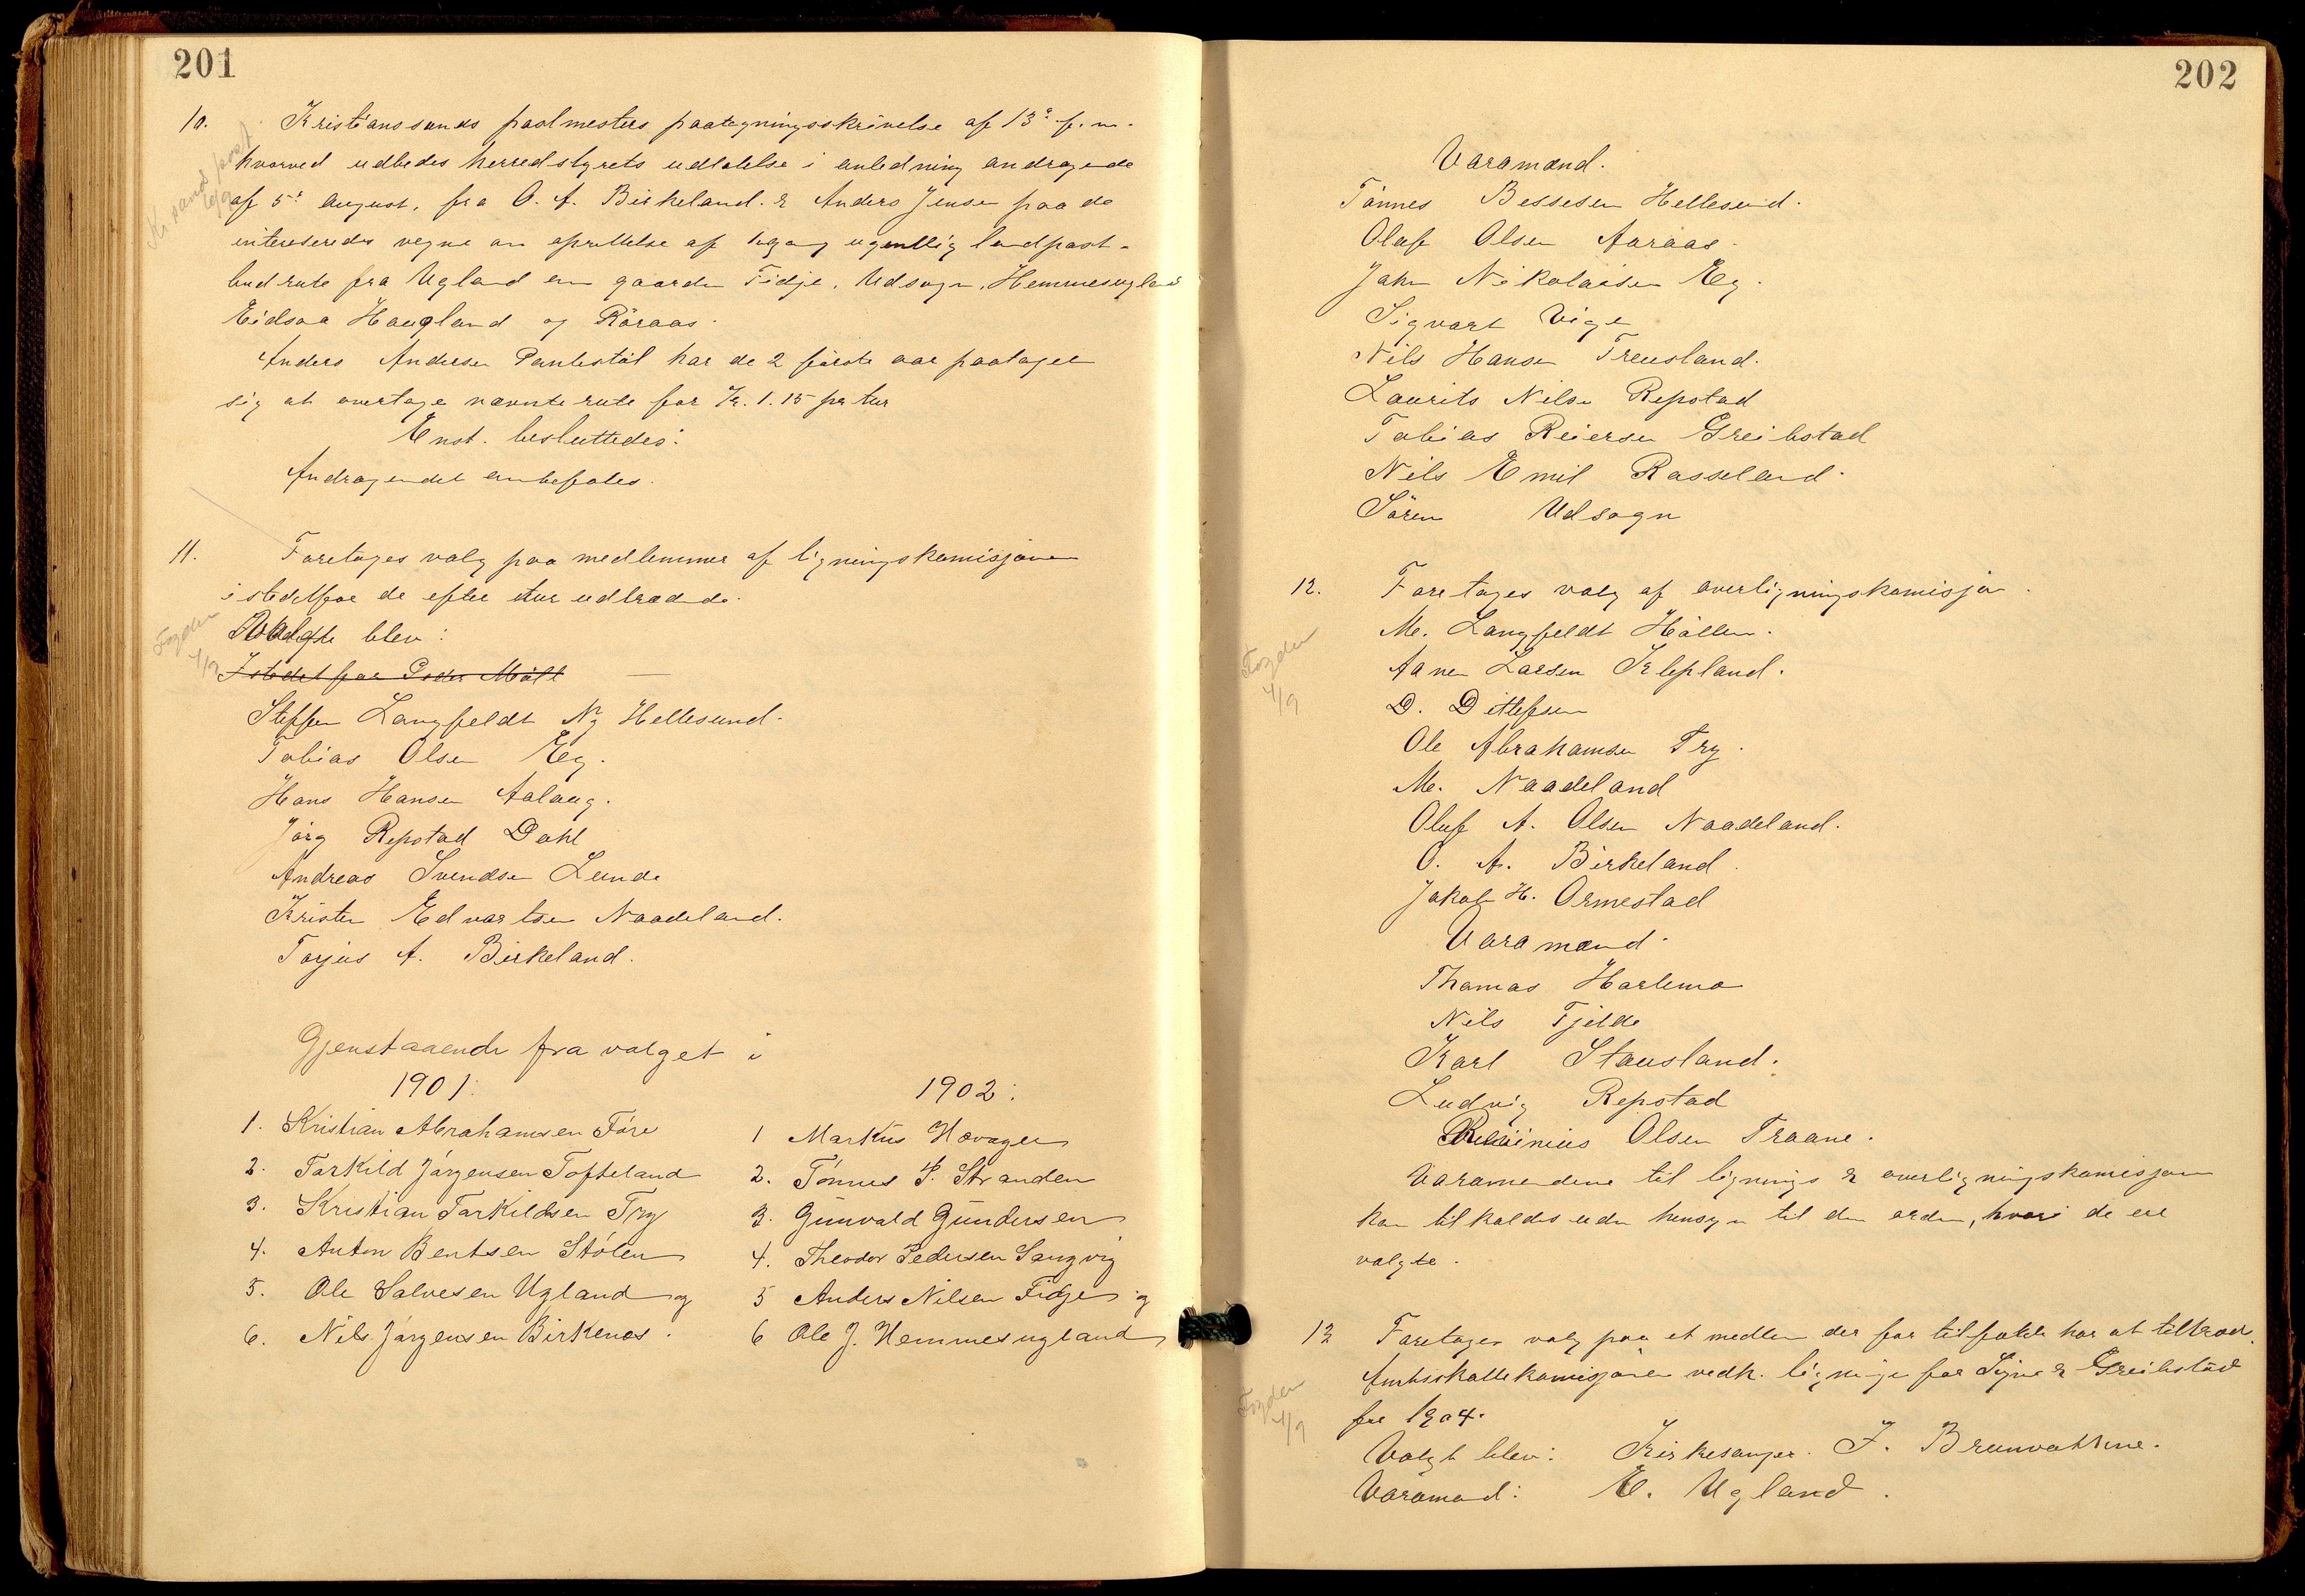 201
10. Kristianssands postmesters paategningsskrivelse af 13de f. m.
hvorved udbedes herredstyrets udtalelse i anledning andragende
af 5te August, fra O. A. Birkeland & Anders Jensen paa de
interesseredes vegne om oprettelse af 1 gang ugentlig landpost-
budrute fra Ugland om gaarden Fidje, Udsogn, Hemmesugland
Eidsaa Haugland og Røraas.
Anders Andersen har de 2 første aar paataget
sig at overtage nævnte rute for Kr. 1.15 pr tur
Enst. besluttedes:
Andragendet anbefales.
Kr.sand post
11. Foretoges valg paa medlemmer af ligningskomisjonen
istedetfor de efter tur udtrædende.
Fogden
4/9
Valgte blev:
Istedet for Peder Møll
Steffen Langfeldt Ny Hellesund.
Tobias Olsen Eg.
Hans Hansen Aalaug.
Jørg Repstad Dahl
Andreas Svendsen Lunde
Kristen Edvartsen Naadeland.
Torjus A. Birkeland.
Gjenstaaende fra valget i
1901: 1902:
1. Kristian Abrahamsen Føre 1 Markus Hovager
2. Tarkild Jørgensen Tofteland 2. Tønnes P. Stranden
3. Kristian Tarkildsen Try 3. Gunvald Gundersen
4. Anton Bentsen Stølen 4. Theodor Pedersen Langvig
5. Ole Salvesen Ugland og 5 Anders Nilsen Fidje og
6. Nils Jørgensen Birkenes. 6 Ole J. Hemmesugland
202
Varamænd.
Tønnes Bessesen Hellesund.
Oluf Olsen Aaraas.
John Nikolaisen Eg.
Sigvart Vige
Nils Hansen Freusland.
Laurits Nilsen Repstad
Tobias Reiersen Greibstad
Nils Emil Rosseland.
Søren Udsogn
12. Foretoges valg af overligningskomisjon.
Fogden
4/9
M. Langfeldt Høllen.
Aanen Larsen Klepland.
D. Ditlefsen
Ole Abrahamsen Try.
M. Naadeland
Oluf A. Olsen Naadeland.
O. A. Birkeland.
Jakob H. Ormestad
Varamænd.
Thomas Harlemo
Nils Fjelde
Karl Stausland.
Ludvig Repstad
Olsen Traane.
Varamendene til lignings & overligningskomisjon
kan tilkaldes uden hensyn til den orden, hvori de ere
valgte.
13 Foretoges valg paa et medlem der for tilfælde har at tiltræde
Amtsskattekomisjonen vedk. ligningen for Søgne & Greibstad
for 1904.
Fogden
4/9
Valgt blev: Kirkesanger J. Brunvathne.
Varamand: E. Ugland.